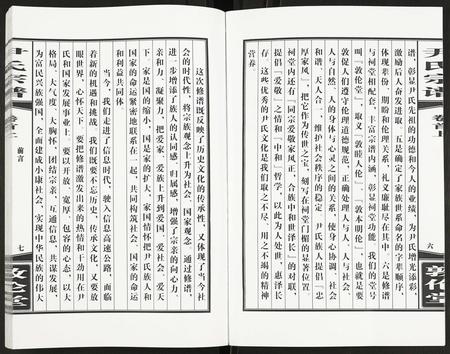 尹氏宗谱
卷首上
六
敦伦堂
谱，彰显尹氏先祖的功德和今人的业绩，为尹氏增光添彩，
激励后人奋发进取；五是确定了家族世系命名的字辈顺序，
体现辈份，期盼和伦理关系，礼义廉耻尽在其中；六是修谱
与祠堂相配套，丰富宗谱内涵，彰显祠堂功能。我们的堂号
叫「敦伦堂」，取义「敦睦人伦」、「敦本明伦」，也就是要
敦促人们遵守伦理道德规范，正确处理人与人、人与社会、
人与自然、人的身体与心灵之间的关系，使身心协调，社会
和谐，天人合一，维护社会秩序的稳定。尹氏族人提倡「忠
厚家风」，把它作为传世之宝，刻写在祠堂门楣的显著位置，
祠堂内还有「同宗爱敬家风正，合族中和世泽长」的对联，
提倡「爱敬」之情和「中和」哲学，以此为人处世，惠泽长
存。这些优秀的尹氏文化是我们取之不尽、用之不竭的精神
营养。
这次修谱既反映了历史文化的传承性，又体现了当今社
会的时代性，将宗族观念上升为社会、国家观念，通过修谱，
进一步增添了族人的认同感、归属感，增强了宗亲的向心力、
亲和力、凝聚力，把爱家、爱族上升到爱国、爱社会、爱天
下。家是国的缩小，国是家的扩大，家国情怀把尹氏族人和
国家的命运紧密地联系在一起，共同构筑社会、国家的命运
和利益共同体。
当今，我们走进了信息时代，驶入信息高速公路，面临
着新的机遇和挑战。我们既要不忘历史，传承文化，又要放
眼世界，心怀天下，要把修谱激发出来的热情和干劲用在尹
氏和国家发展事业上，要以开放、宽厚、包容的心态，以大
格局、大气度、大胸怀，团结宗亲，互通信息，共谋发展，
为富民兴族强国，全面建成小康社会，实现中华民族的伟大
尹氏宗谱
卷首上
前言
七
敦伦堂